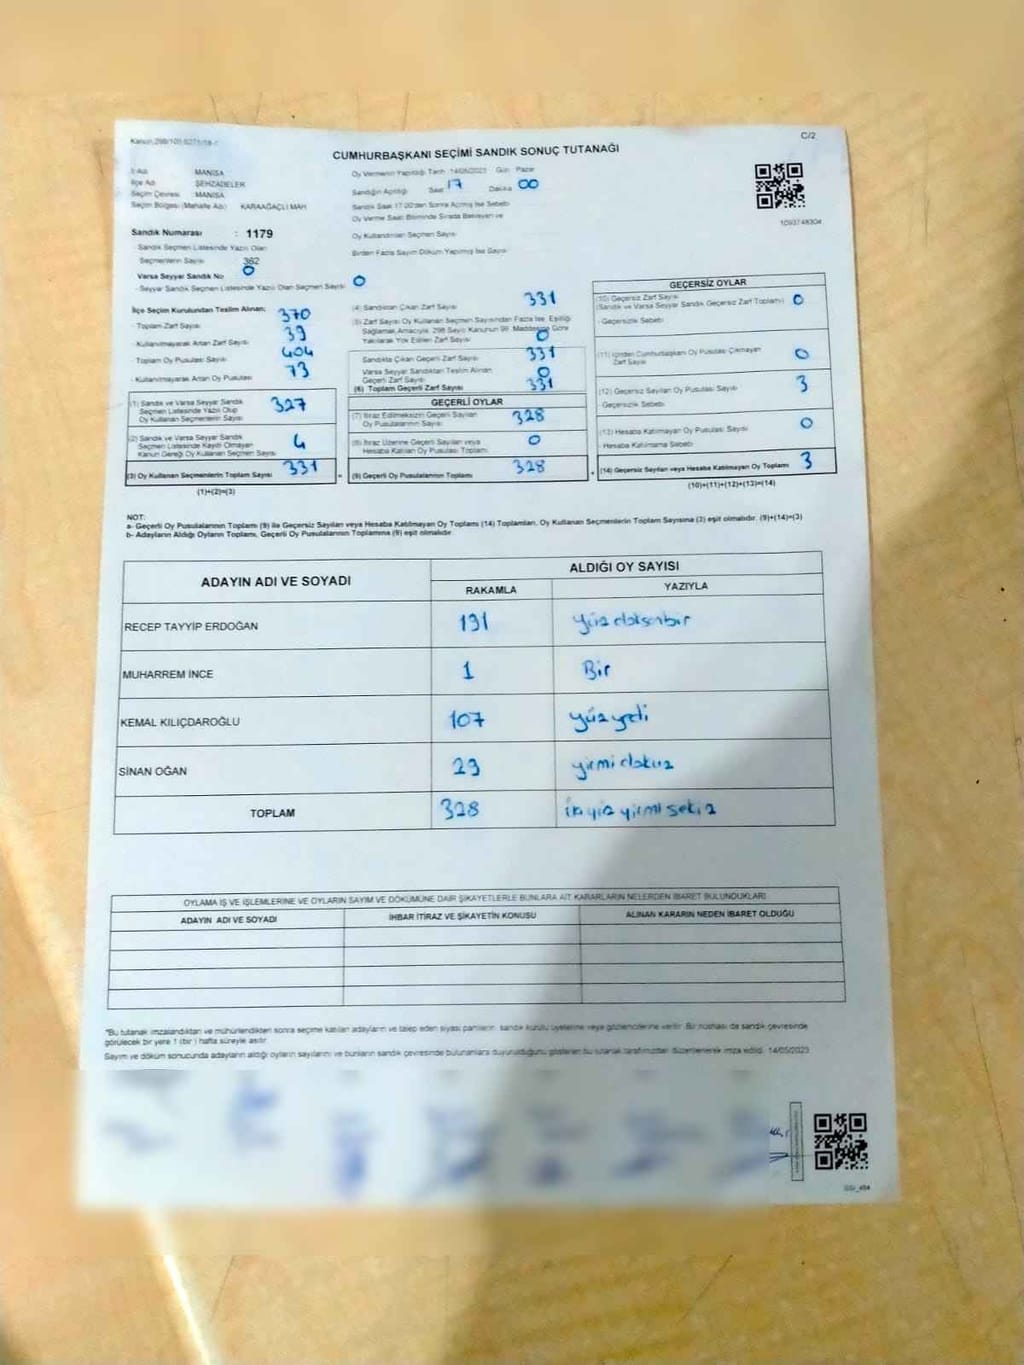 C/2
CUMHURBAŞKANI SEÇİMİ SANDIK SONUÇ TUTANAĞI
İl Adı MANİSA
İlçe Adı ŞEHZADELER
Seçim Çevresi MANİSA
Seçim Bölgesi (Mahalle Adı) KARAAĞAÇLI MAH
Oy Vermenin Yapıldığı Tarih 14/05/2023 Gün Pazar
Sandığın Açıldığı Saat 17 Dakika 00
Sandık Saat 17.00'den Sonra Açılmış İse Sebebi
Oy Verme Saati Bitiminde Sırada Bekleyen ve
Oy Kullandırılan Seçmen Sayısı
Birden Fazla Sayım Döküm Yapılmış İse Sayısı
1093748304
Sandık Numarası : 1179
Sandık Seçmen Listesinde Yazılı Olan
Seçmenlerin Sayısı 362
Varsa Seyyar Sandık No 0
- Seyyar Sandık Seçmen Listesinde Yazılı Olan Seçmen Sayısı 0
İlçe Seçim Kurulundan Teslim Alınan; 370
- Toplam Zarf Sayısı
- Kullanılmayarak Artan Zarf Sayısı 39
- Toplam Oy Pusulası Sayısı 404
- Kullanılmayarak Artan Oy Pusulası 73
(1) Sandık ve Varsa Seyyar Sandık
Seçmen Listesinde Yazılı Olup
Oy Kullanan Seçmenlerin Sayısı 327
(2) Sandık ve Varsa Seyyar Sandık
Seçmen Listesinde Kayıtlı Olmayan
Kanun Gereği Oy Kullanan Seçmen Sayısı 4
(3) Oy Kullanan Seçmenlerin Toplam Sayısı 331
(1)+(2)=(3)
(4) Sandıktan Çıkan Zarf Sayısı 331
(5) Zarf Sayısı Oy Kullanan Seçmen Sayısından Fazla İse, Eşitliği
Sağlamak Amacıyla, 298 Sayılı Kanunun 98. Maddesine Göre
Yakılarak Yok Edilen Zarf Sayısı 0
Sandıkta Çıkan Geçerli Zarf Sayısı 331
Varsa Seyyar Sandıktan Teslim Alınan
Geçerli Zarf Sayısı 0
(6) Toplam Geçerli Zarf Sayısı 331
GEÇERLİ OYLAR
(7) İtiraz Edilmeksizin Geçerli Sayılan
Oy Pusulalarının Sayısı 328
(8) İtiraz Üzerine Geçerli Sayılan veya
Hesaba Katılan Oy Pusulası Toplamı 0
(9) Geçerli Oy Pusulalarının Toplamı 328
GEÇERSİZ OYLAR
(10) Geçersiz Zarf Sayısı
(Sandık ve Varsa Seyyar Sandık Geçersiz Zarf Toplamı) 0
- Geçersizlik Sebebi
(11) İçinden Cumhurbaşkanı Oy Pusulası Çıkmayan
Zarf Sayısı 0
(12) Geçersiz Sayılan Oy Pusulası Sayısı 3
- Geçersizlik Sebebi
(13) Hesaba Katılmayan Oy Pusulası Sayısı 0
- Hesaba Katılmama Sebebi
(14) Geçersiz Sayılan veya Hesaba Katılmayan Oy Toplamı 3
(10)+(11)+(12)+(13)=(14)
NOT:
a- Geçerli Oy Pusulalarının Toplamı (9) ile Geçersiz Sayılan veya Hesaba Katılmayan Oy Toplamı (14) Toplamları, Oy Kullanan Seçmenlerin Toplam Sayısına (3) eşit olmalıdır. (9)+(14)=(3)
b- Adayların Aldığı Oyların Toplamı, Geçerli Oy Pusulalarının Toplamına (9) eşit olmalıdır
ADAYIN ADI VE SOYADI ALDIĞI OY SAYISI
RAKAMLA YAZIYLA
RECEP TAYYİP ERDOĞAN 191 yüz doksanbir
MUHARREM İNCE 1 Bir
KEMAL KILIÇDAROĞLU 107 yüz yedi
SİNAN OĞAN 29 yirmi dokuz
TOPLAM 328 yirmi sekiz
OYLAMA İŞ VE İŞLEMLERİNE VE OYLARIN SAYIM VE DÖKÜMÜNE DAİR ŞİKAYETLERLE BUNLARA AİT KARARLARIN NELERDEN İBARET BULUNDUKLARI
ADAYIN ADI VE SOYADI İHBAR İTİRAZ VE ŞİKAYETİN KONUSU ALINAN KARARIN NEDEN İBARET OLDUĞU
"Bu tutanak imzalandıktan ve mühürlendikten sonra seçime katılan adayların ve talep eden siyasi partilerin sandık kurulu üyelerine veya gözlemcilerine verilir. Bir nüshası da sandık çevresinde
görülecek bir yere 1 (bir) hafta süreyle asılır
Sayım ve döküm sonucunda adayların aldığı oyların sayılarını ve bunların sandık çevresinde bulunanlara duyurulduğunu gösteren bu tutanak tarafımızdan düzenlenerek imza edildi. 14/05/2023